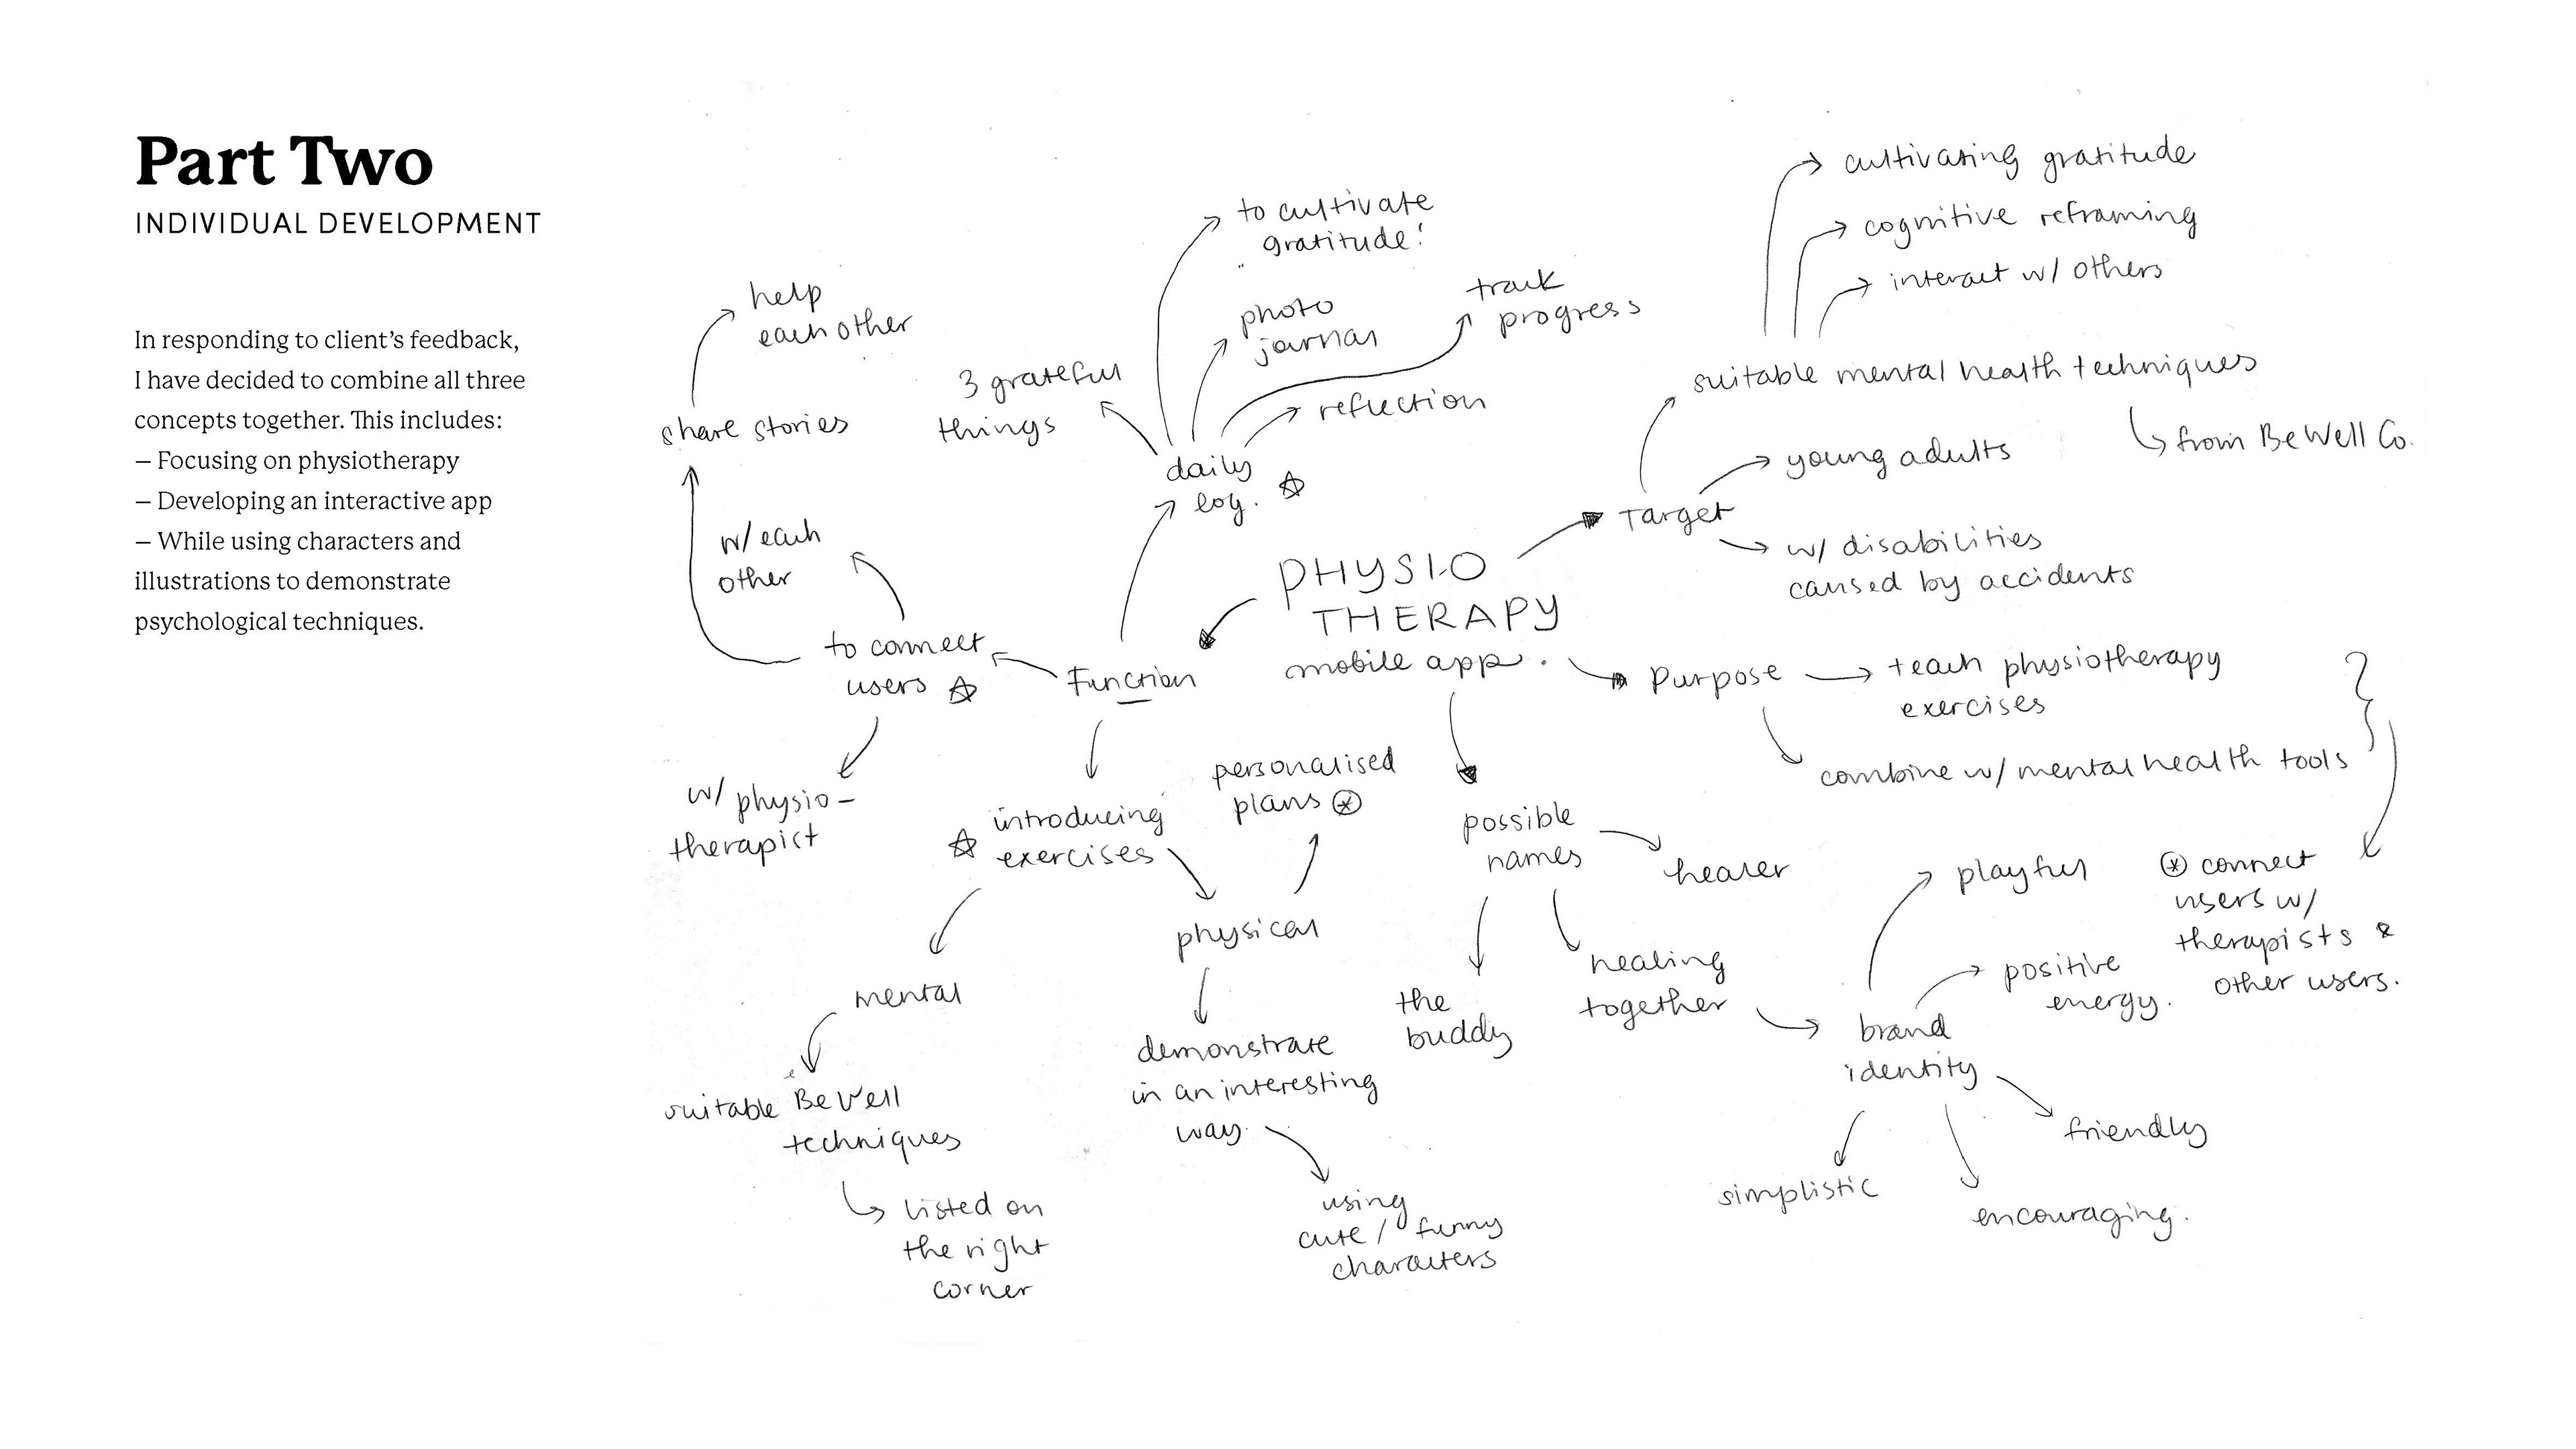 Part Two
INDIVIDUAL DEVELOPMENT
In responding to client’s feedback,
I have decided to combine all three
concepts together. This includes:
– Focusing on physiotherapy
– Developing an interactive app
– While using characters and
illustrations to demonstrate
psychological techniques.
PHYSIO
THERAPY
mobile app.
Function
daily
log.
to cultivate
gratitude!
photo
journal
track
progress
reflection
3 grateful
things
to connect
users
w/ each
other
share stories
help
each other
w/ physio-
therapist
introducing
exercises
mental
suitable BeWell
techniques
listed on
the right
corner
physical
personalised
plans
demonstrate
in an interesting
way
using
cute / funny
characters
Target
suitable mental health techniques
cultivating gratitude
cognitive reframing
interact w/ others
from BeWell Co.
young adults
w/ disabilities
caused by accidents
Purpose
teach physiotherapy
exercises
combine w/ mental health tools
connect
users w/
therapists &
other users.
possible
names
healer
the
buddy
healing
together
brand
identity
playful
positive
energy.
friendly
encouraging.
simplistic